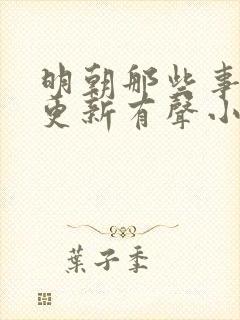 明朝那些事
更新有聲小
葉子季